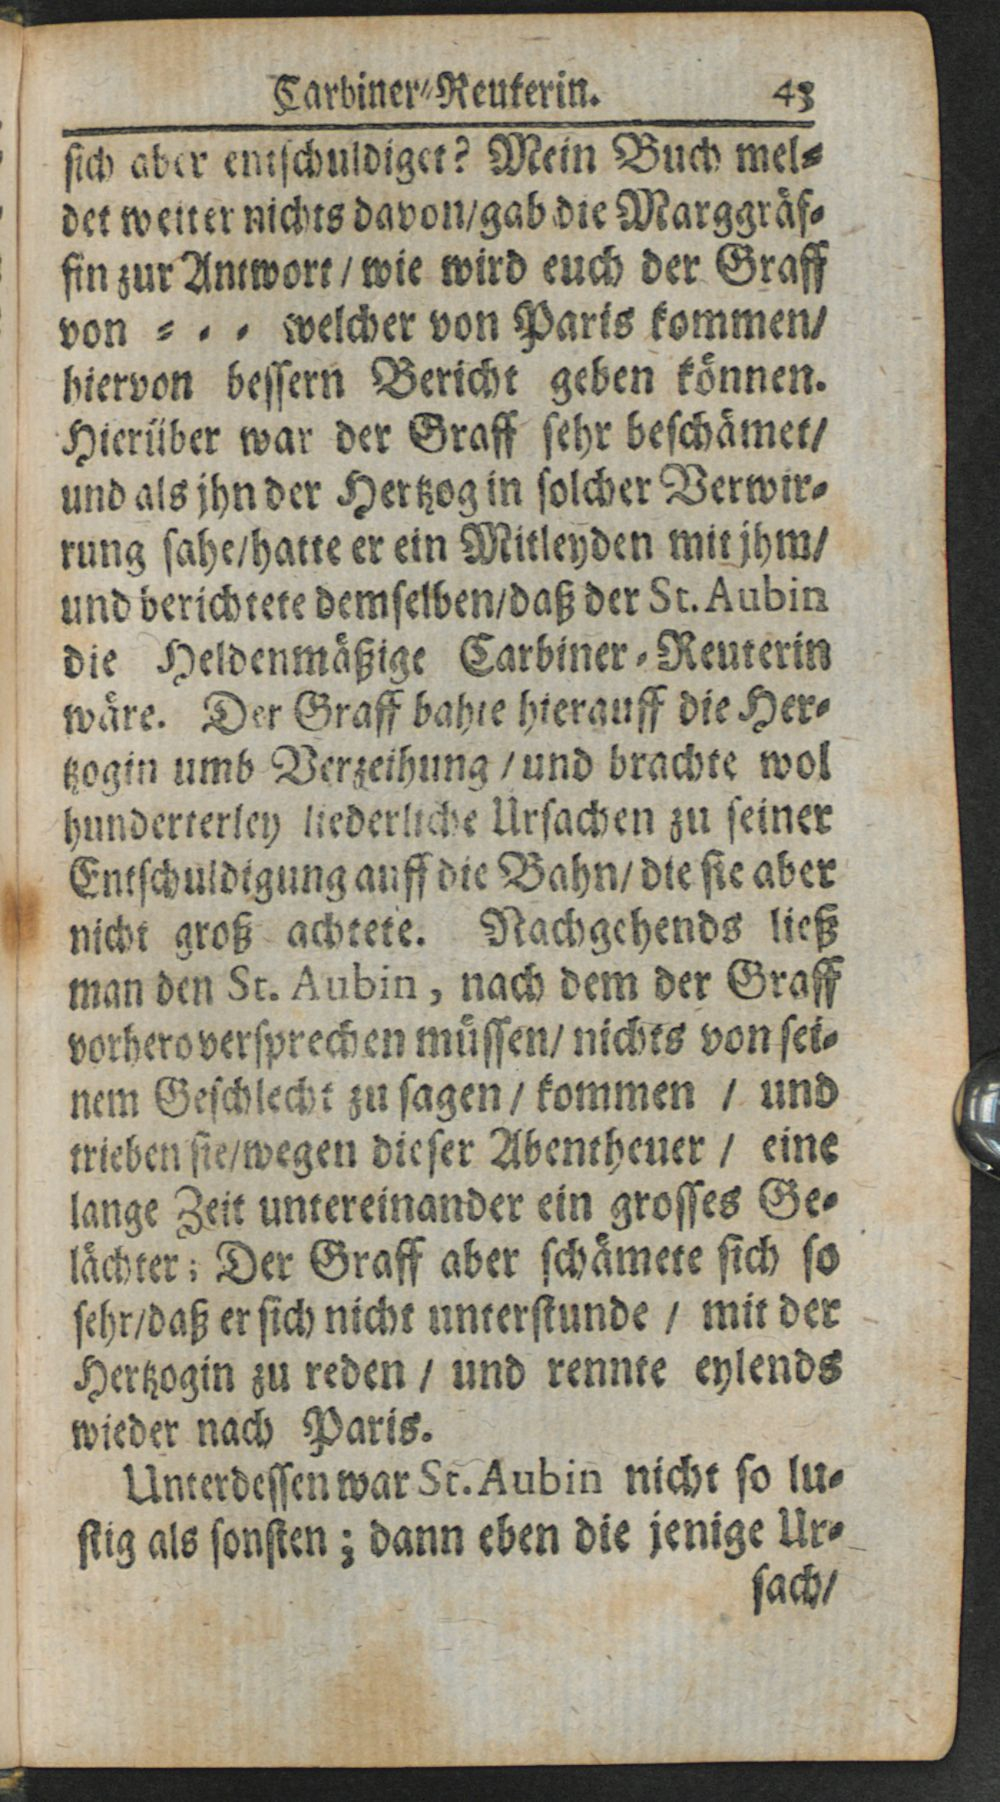 Carbiner-Reuterin. 43
sich aber entschuldiget? Mein Buch mel-
det weiter nichts davon/gab die Marggräf-
fin zur Antwort / wie wird euch der Graff
von = = = welcher von Paris kommen/
hiervon bessern Bericht geben können.
Hierüber war der Graff sehr beschämet/
und als jhn der Hertzog in solcher Verwir-
rung sahe/hatte er ein Mitleyden mit jhm/
und berichtete demselben/daß der St. Aubin
die Heldenmäßige Carbiner-Reuterin
wäre. Der Graff bahte hierauff die Her-
tzogin umb Verzeihung / und brachte wol
hunderterley liederliche Ursachen zu seiner
Entschuldigung auff die Bahn/ die sie aber
nicht groß achtete. Nachgehends ließ
man den St. Aubin, nach dem der Graff
vorhero versprechen müssen/ nichts von sei-
nem Geschlecht zu sagen / kommen / und
trieben sie/wegen dieser Abentheuer / eine
lange Zeit untereinander ein grosses Ge-
lächter; Der Graff aber schämete sich so
sehr/daß er sich nicht unterstunde / mit der
Hertzogin zu reden / und rennte eylends
wieder nach Paris.
Unterdessen war St. Aubin nicht so lu-
stig als sonsten; dann eben die jenige Ur-
sach/